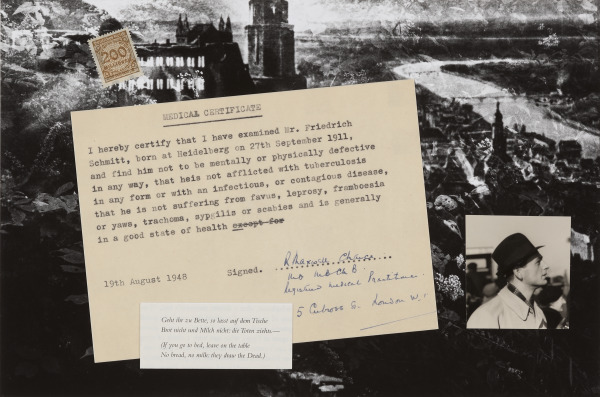 200
MEDICAL CERTIFICATE
I hereby certify that I have examined Mr. Friedrich
Schmitt, born at Heidelberg on 27th September 1911,
and find him not to be mentally or physically defective
in any way, that heis not afflicted with tuberculosis
in any form or with an infectious, or contagious disease,
that he is not suffering from favus, leprosy, framboesia
or yaws, trachoma, sypgilis or scabies and is generally
in a good state of health except for
19th August 1948 Signed.
Registered medical Practitioner.
5 Culross S. London W.1
Geht ihr zu Bette, so lasst auf dem Tische
Brot nicht und Milch nicht; die Toten ziehts.—
(If you go to bed, leave on the table
No bread, no milk; they draw the Dead.)